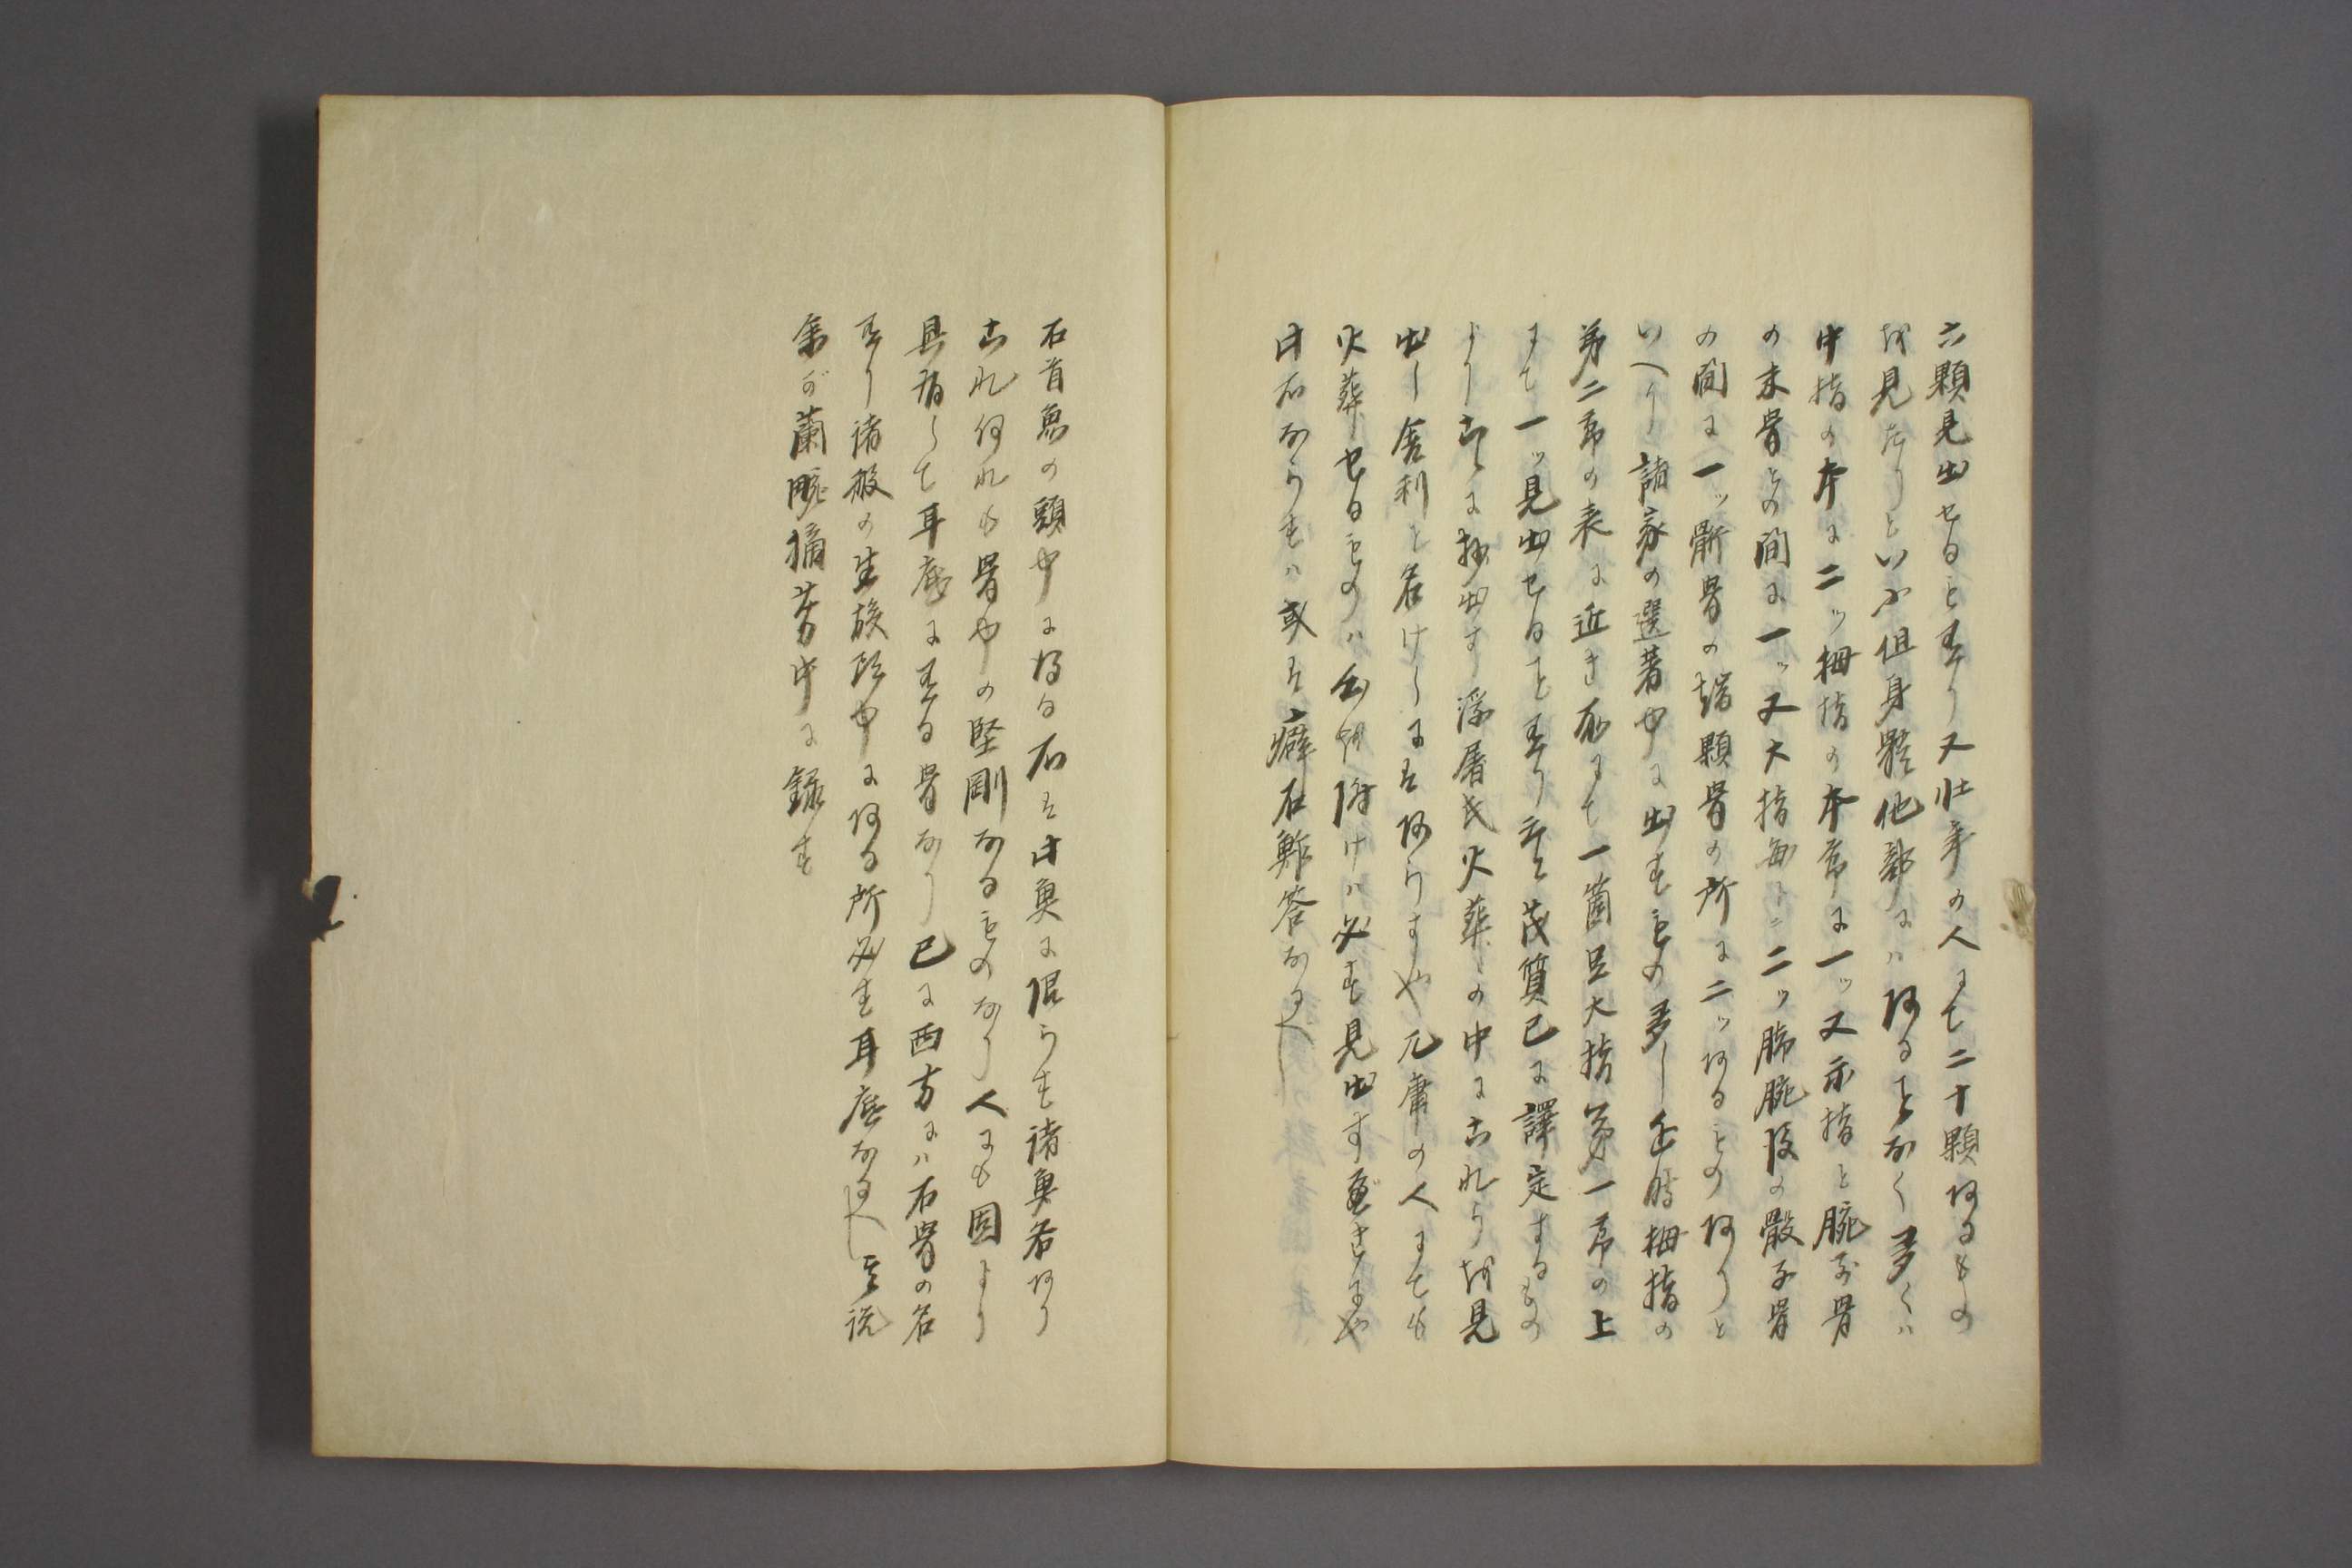 六顆見出せることあり又壮年の人にて二十顆あるもの
を見たりといふ但身體他部にハあることなく多くハ
中指の本に二ッ拇指の本節に一ッ又示指と腕前骨
の末骨との間に一ッ又大指毎ニ二ッ膝腕後の骰子骨
の間に一ッ骭骨の端顆骨の所に二ッあるとのありと
いへり諸家の選著中に出すもの多し無時拇指の
第二節の表に近き所にて一箇足大指第一節の上
にて一ッ見出せることあり茂質已に譯定するもの
より こゝに抄出す浮屠氏火葬の中にこれらを見
出し舎利と名けしにはあらすや凡庸の人にても
火葬せるものハ心付けハ必す見出すべきにや
此石ならすハ或は癖石鮓荅なるへし
石首魚の頭中にある石は此魚に限らす諸魚各あり
これ何れも骨中の堅剛なるものなり人にも固より
具有して耳底にある骨なり已に西方にハ石骨の名
あり諸般の生族頭中にある所必す耳底なるへし其説
余が蘭畹摘芳中に録す